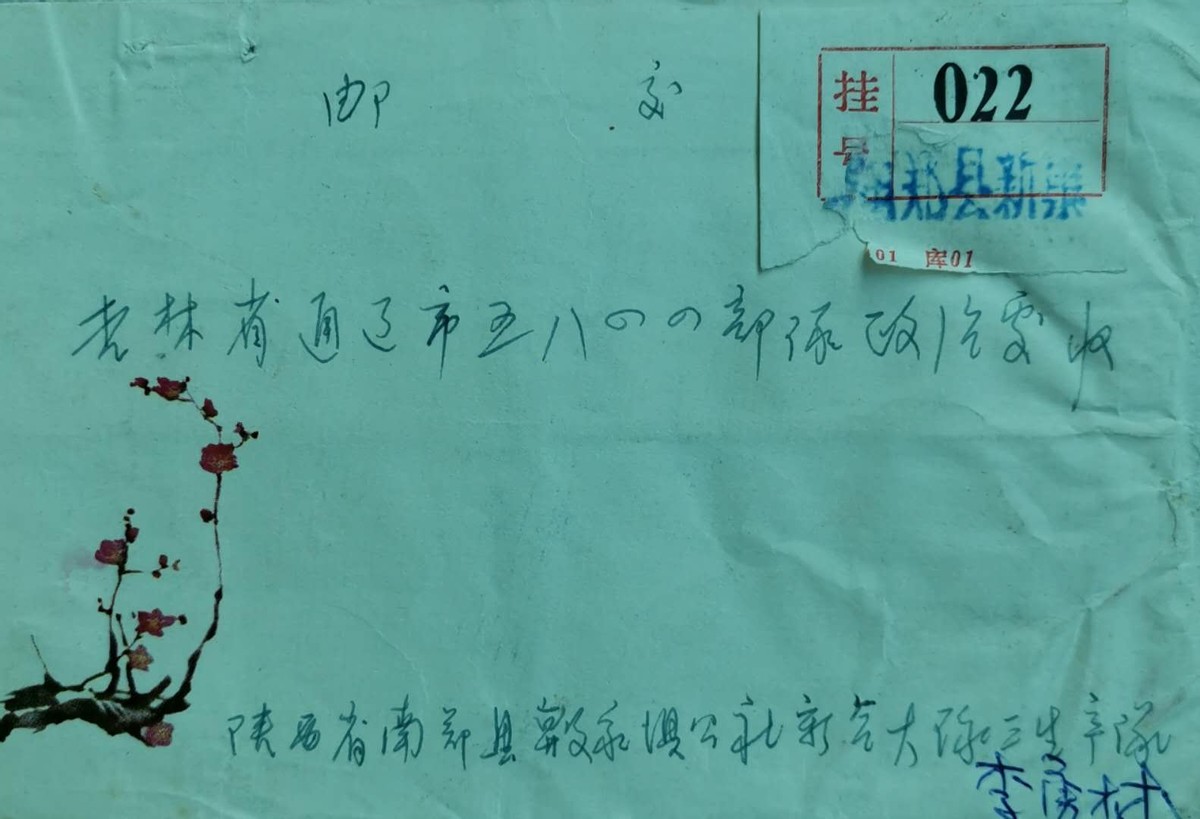 邮 交
挂号 022
南郑县新集
01 库01
吉林省通辽市五八〇〇部队政治处收
陕西省南郑县 公社新合大队三生产队
李 林